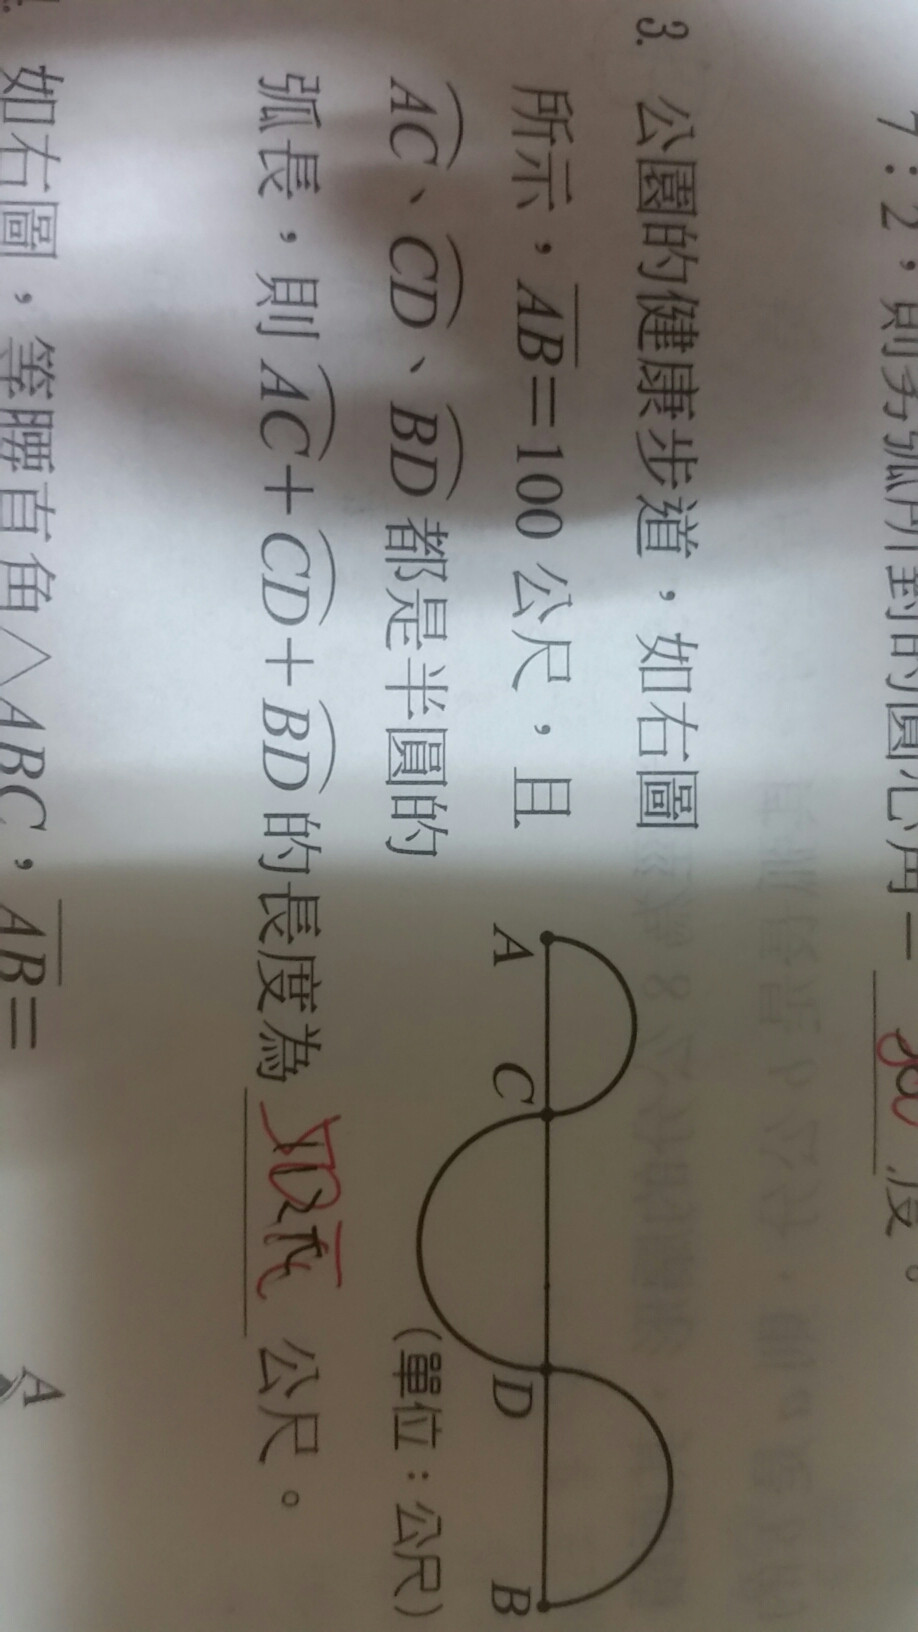 7：2，則劣弧所對的圓心角＝ 度。
3. 公園的健康步道，如右圖
所示，AB=100 公尺，且
AC、CD、BD 都是半圓的
弧長，則 AC+CD+BD 的長度為 公尺。
A
C
D
B
(單位：公尺)
如右圖，等腰直角△ABC，AB=
A